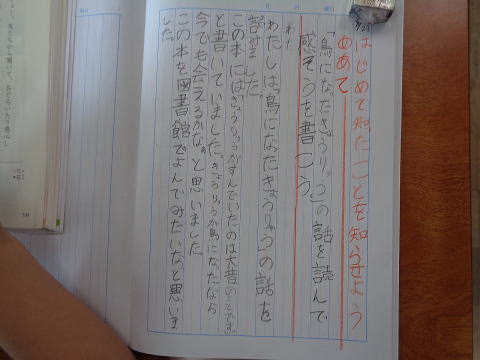 はじめて知ったことを知らせよう
めあて
「鳥になったきょうりゅう」の話を読んで
感そうを書こう
わたしは「鳥になったきょうりゅう」の話を
読みました。
この本には「きょうりゅうがすんでいたのは大昔のことです」
と書いていました。きょうりゅうが鳥になったなら
今でも会えるかな。と思いました。
この本を図書館でよんでみたいな。と思いま
した。